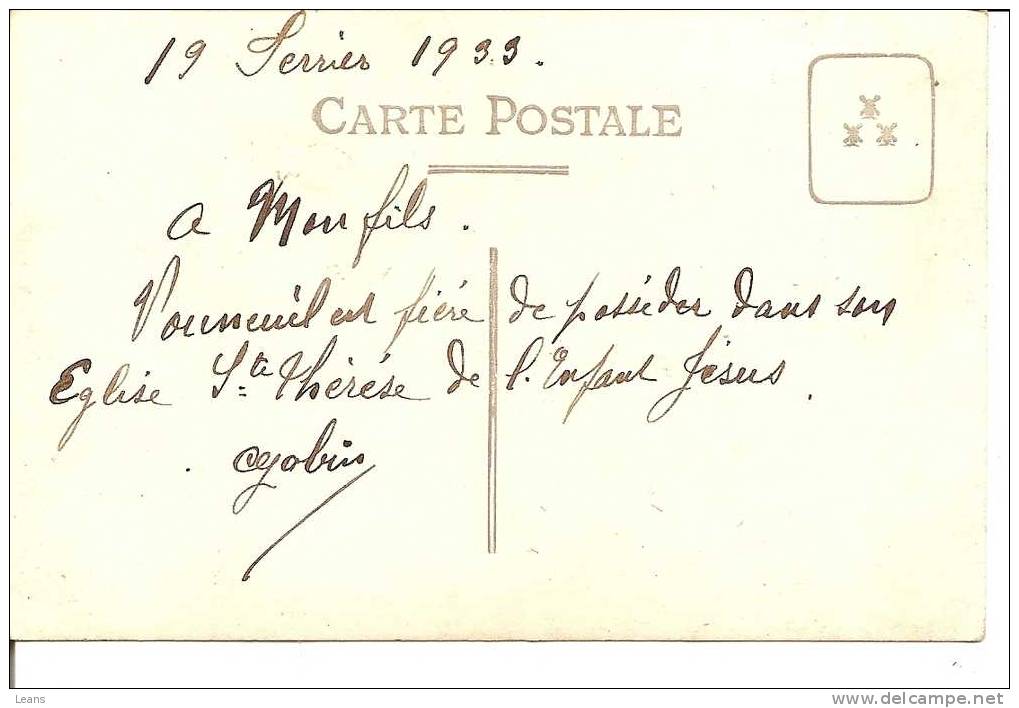 19 Ferrier 1933.
CARTE POSTALE
a Mon fils.
Vouneuil est fière de posséder dans son
Eglise Ste Thérèse de l'Enfant Jésus.
Leans
www.delcampe.net